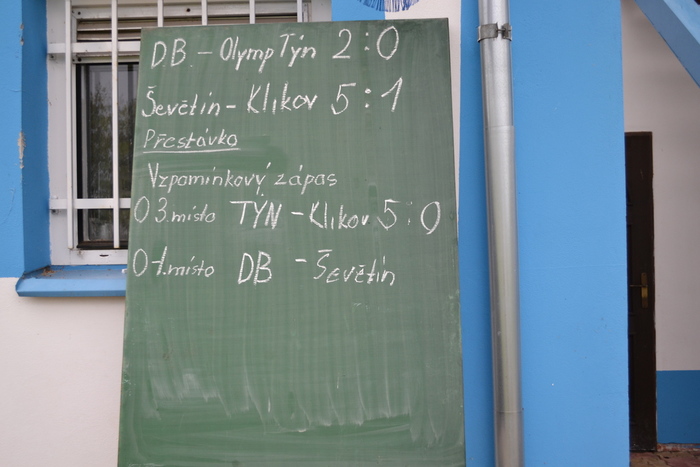 DB. - Olymp Týn 2:0
Ševětín - Klikov 5:1
Přestávka
Vzpomínkový zápas
O 3.místo TÝN - Klikov 5:0
O 1.místo DB - Ševětín